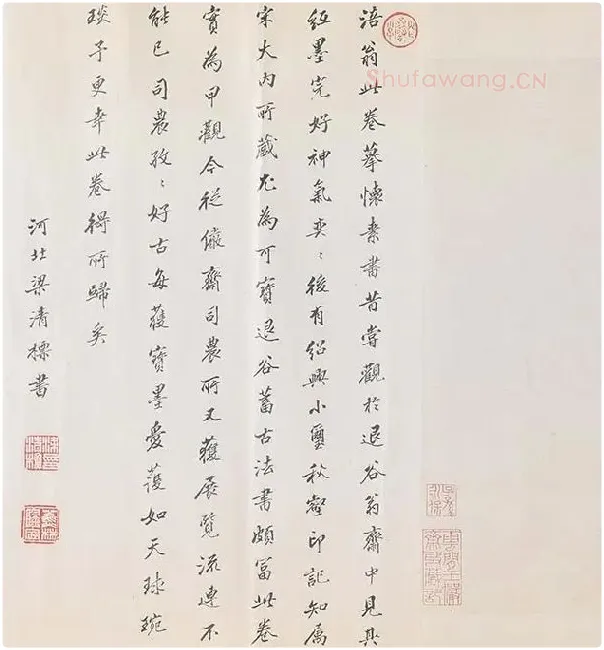 涪翁此卷摹懷素書昔嘗觀於退谷翁齋中見其
紙墨完好神氣奕〻後有紹興小璽秋壑印記知屬
宋大内所藏尤為可寶退谷蓄古法書頗富此卷
實為甲觀今從儼齋司農所又獲展覽流連不
能已司農孜〻好古每獲寶墨愛護如天球琬
琰予更幸此卷得所歸矣
河北梁清標書
Shufawang.CN